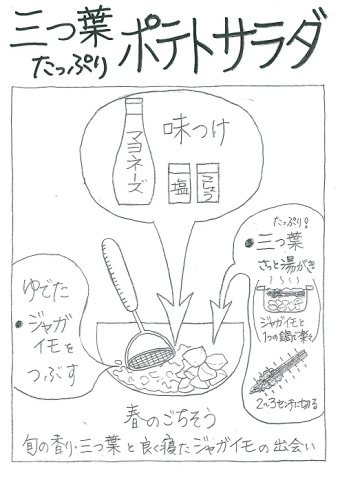 三つ葉
たっぷり
ポテトサラダ
味つけ
マヨネーズ
塩
こしょう
たっぷり!
・三つ葉
さっと湯がき
ジャガイモと
1つの鍋で楽々
2〜3センチに切る
ゆでた
・ジャガ
イモを
つぶす
春のごちそう
旬の香り・三つ葉と良く寝たジャガイモの出会い